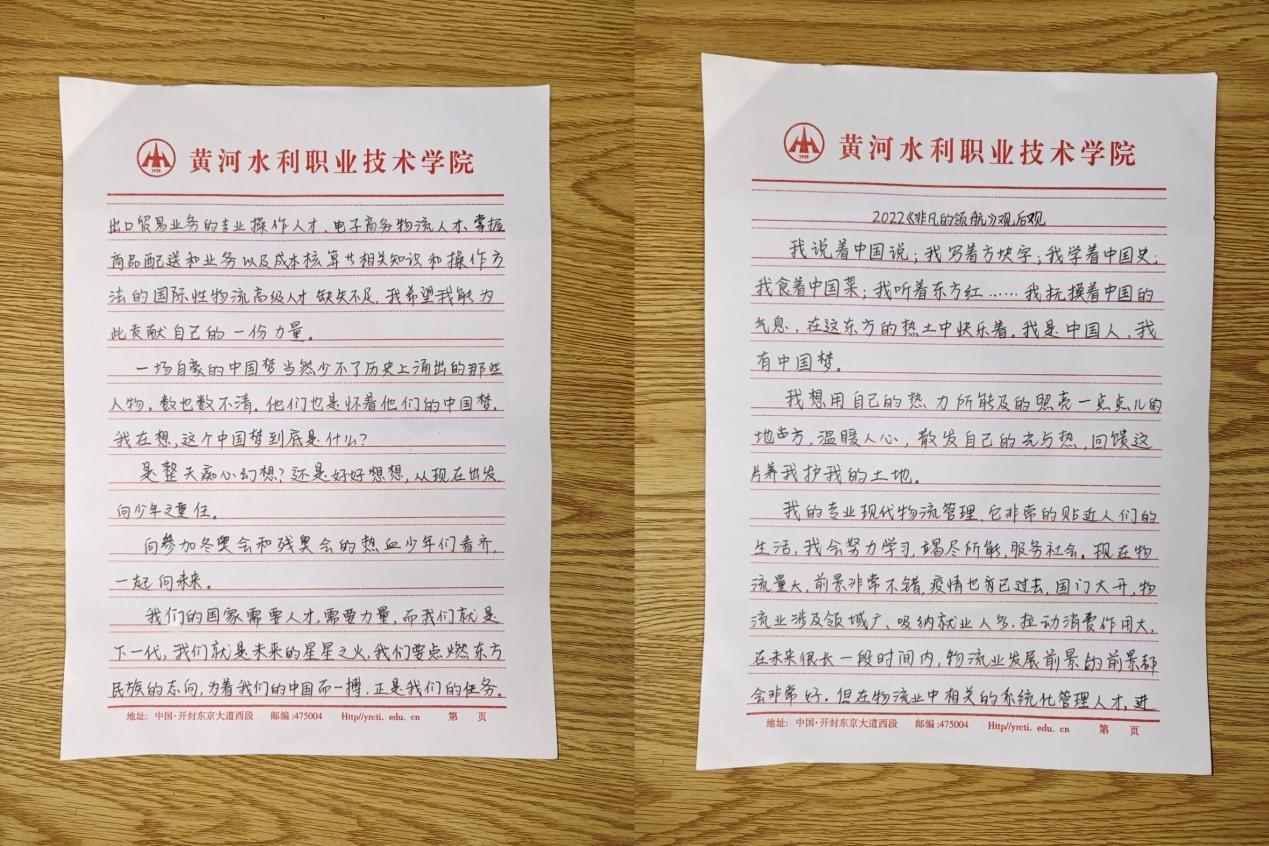 黄河水利职业技术学院
出口贸易业务的专业操作人才、电子商务物流人才、掌握
商品配送和业务以及成本核算等相关知识和操作方
法的国际性物流高级人才缺失不足,我希望我能为
此贡献自己的一份力量。
一场自豪的中国梦当然少不了历史上涌出的那些
人物,数也数不清。他们也是怀着他们的中国梦,
我在想,这个中国梦到底是什么?
是整天痴心幻想?还是好好想想,从现在出发,
向少年之重任。
向参加冬奥会和残奥会的热血少年们看齐,
一起向未来。
我们的国家需要人才,需要力量,而我们就是
下一代,我们就是未来的星星之火,我们要点燃东方
民族的志向,为着我们的中国而一搏,正是我们的任务。
地址: 中国·开封东京大道西段 邮编:475004 Http//yrcti. edu. cn 第 页
黄河水利职业技术学院
2022《非凡的领航》观后观
我说着中国说;我写着方块字;我学着中国史;
我食着中国菜;我听着东方红……我抚摸着中国的
气息,在这东方的热土中快乐着。我是中国人,我
有中国梦。
我想用自己的热力所能及的照亮一点点儿的
地方,温暖人心,散发自己的光与热,回馈这
片养我护我的土地。
我的专业现代物流管理,它非常的贴近人们的
生活,我会努力学习,竭尽所能,服务社会。现在物
流量大,前景非常不错,疫情也已过去,国门大开,物
流业涉及领域广、吸纳就业人多,拉动消费作用大,
在未来很长一段时间内,物流业发展前景的前景都
会非常好。但在物流业中相关的系统化管理人才,进
地址: 中国·开封东京大道西段 邮编:475004 Http//yrcti. edu. cn 第 页